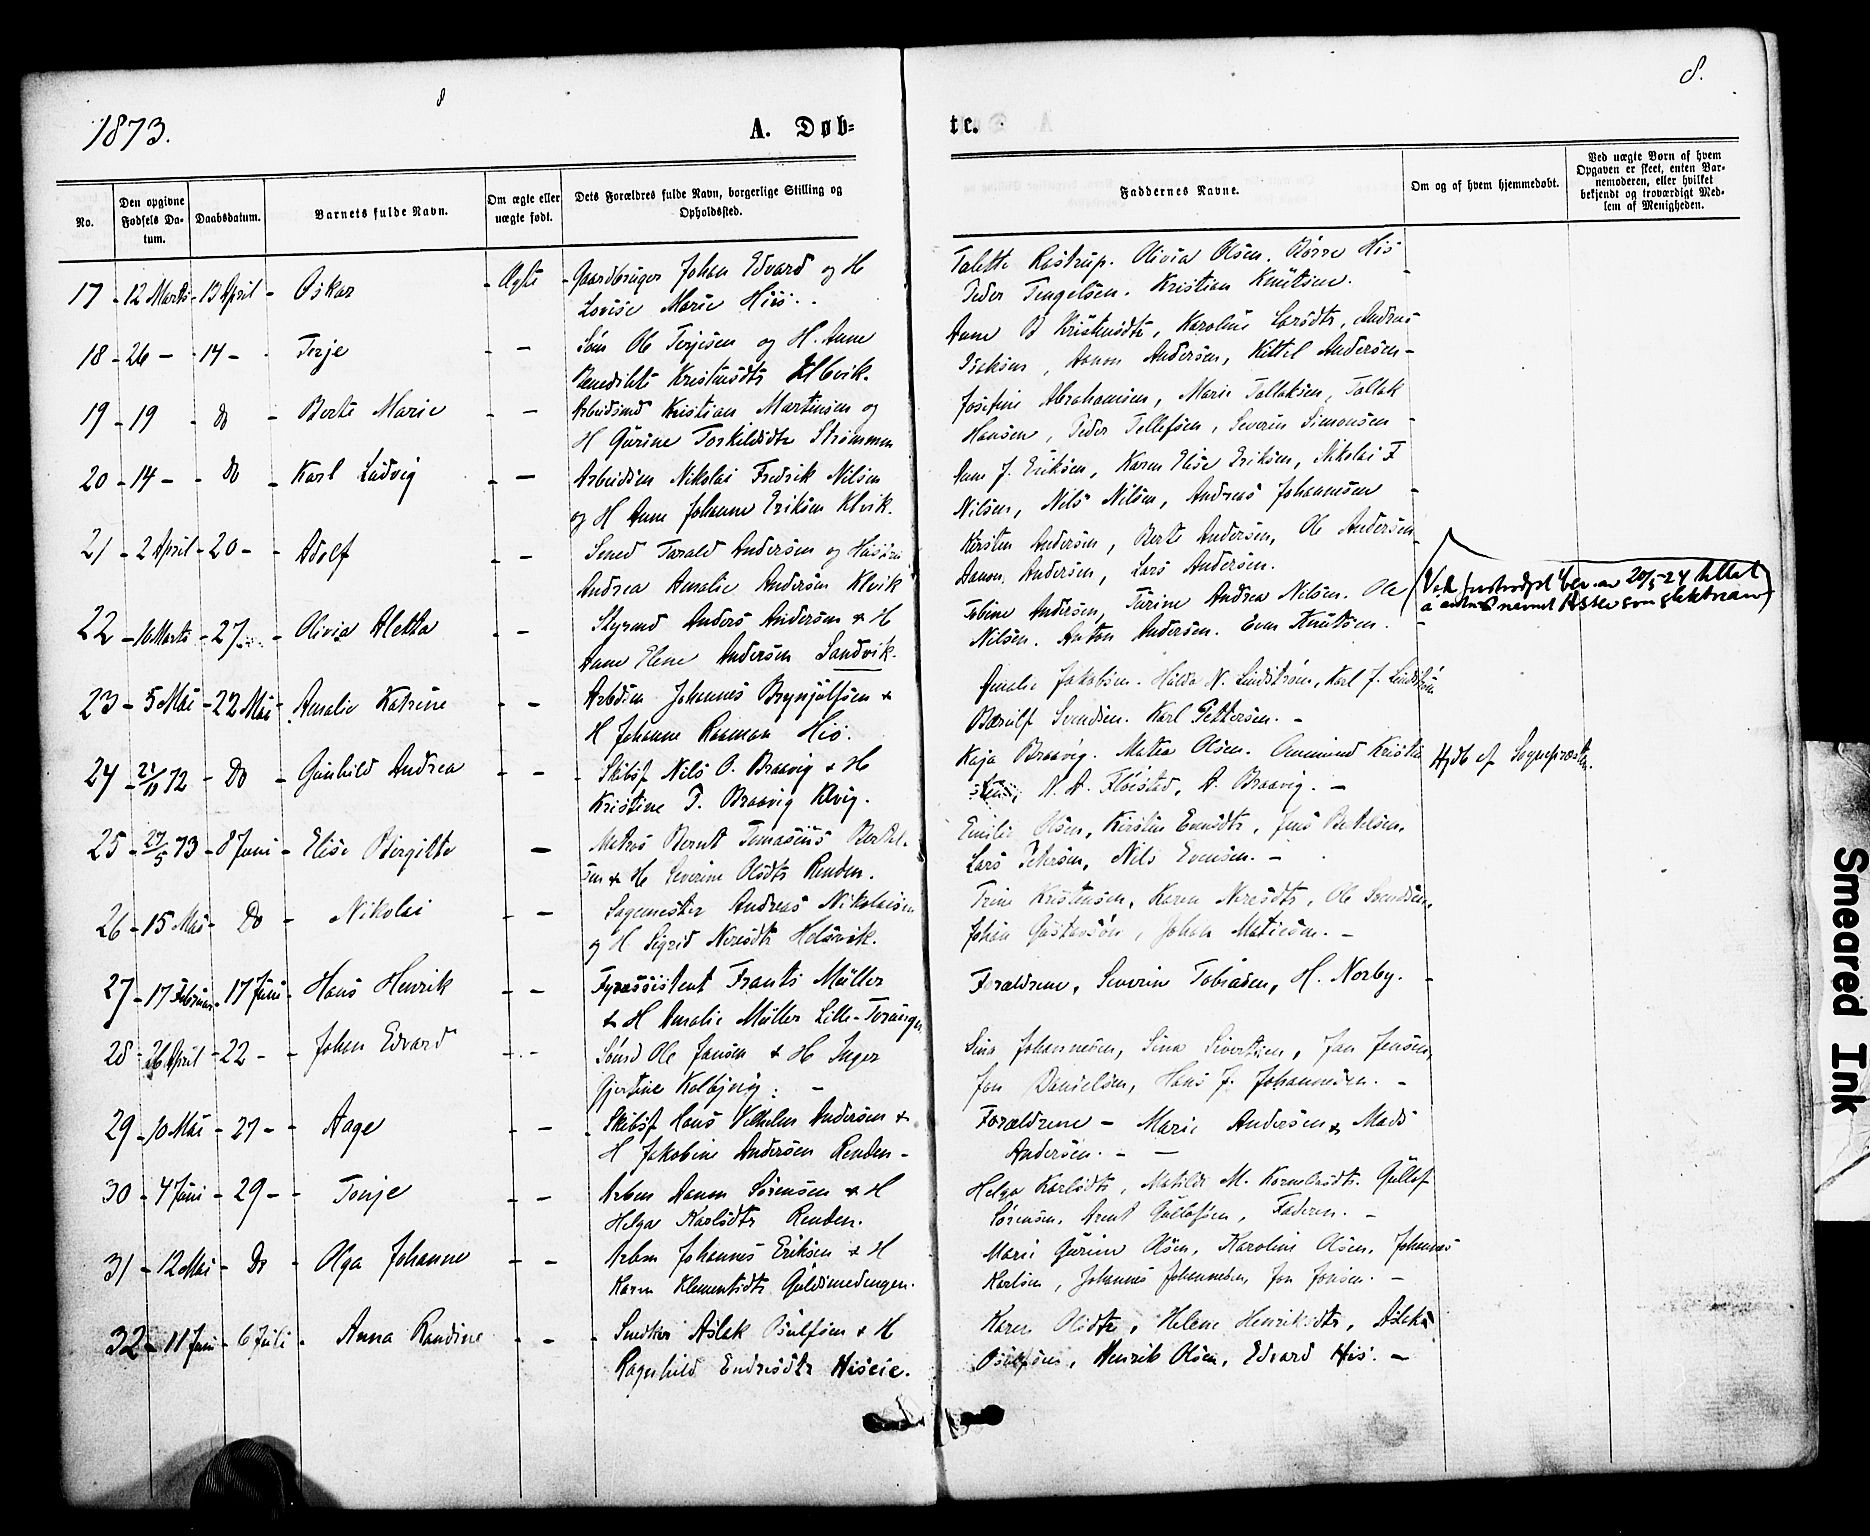 8
8.
1873.
A. Døb-
te.
No.
Den opgivne Fødsels Datum.
Daabsdatum.
Barnets fulde Navn.
Om ægte eller uægte født.
Dets Forældres fulde Navn, borgerlige Stilling og Opholdssted.
Faddernes Navne.
Om og af hvem hjemmedøbt.
Ved uægte Born af hvem Opgaven er skeet, enten Barnemoderen, eller hvilket bekjendt og troværdigt Medlem af Menigheden.
17 - 12 Marts - 13 April - Oskar - Ægte - Gaardbruger Johan Edvard og H Talette Rastrup. Olivia Olsen. Børre His
Lovise Marie His. Peder Tengelsen. Kristian Knutsen.
18 - 26 - 14 - Terje - Søm Ole Terjesen og H. Anne Anne B Kristensdtr, Karoline Larsdtr, Andreas
Benedikte Kristensdtr Klvik. Isaksen, Aanon Andersen, Kittel Andersen -
19 - 19 - do - Berte Marie - Arbeidsmd Kristian Martinsen og Josefine Abrahamsen, Marie Tallaksen, Tallak
H Gurine Torkildsdtr Strømmen Hansen, Peder Tellefsen, Severin Simonsen -
20 - 14 - do - Karl Ludvig - Arbeidsm Nikolai Fredrik Nilsen Anne J. Eriksen, Karen Elise Eriksen, Nikolai F
og H Anne Johanne Eriksen Klvik. Nilsen, Nils Nilsen, Andreas Johannesen -
21 - 2 April - 20 - Adolf - Smed Tarald Andersen og Hustru Kirsten Andersen, Berte Andersen, Ole Andersen
Andrea Amalie Andersen Klvik Aanon Andersen, Lars Andersen.
22 - 16 Marts - 27 - Olivia Aletta - Styrmd Anders Andersen & H Tobine Andersen, Turine Andrea Nilsen. Ole
Anne Elene Andersen Sandvik. Nilsen. Anton Andersen. Even Knutsen. -
av 20/5-24 tillat
som slektsnavn
23 - 5 Mai - 22 Mai - Amalie Katrine - Arbdsm Johannes Brynjulfsen & Amalie Jakobsen. Hilda N. Lindstrøm, Karl J. Lindstrøm
H Johanne Roaman His. Svendsen. Karl Pettersen. -
24 - 21/10 72 - Do - Gunhild Andrea - Skibsf Nils O. Braavig & H Kaja Braavig. Matea Olsen. Ommund Kristen Hjdb af Sognepræsten.
Kristine T. Braavig Klvig. sen, N. A. Fløistad, A. Braavig. -
25 - 27/5 73 - 8 Juni - Elise Birgitte - Matros Bernt Tomasius Bertel- Emilie Olsen, Kirsten Evensdtr, Jens Bertelsen,
sen & H Severine Olsdtr Renden. Lars Petersen, Nils Evensen. -
26 - 15 Mai - Do - Nikolai - Sagmester Andreas Nikolaisen Trine Kristensen, Karen Neresdtr, Ole Svendsen,
og H Sigrid Neresdtr Helsvik. Johan Gustavsøn, Johan Matisen. -
27 - 17 Februar - 17 Juni - Hans Henrik - Fyrassistent Frants Müller Forældrene, Severin Tobiasen, H. Norby. -
& H Amalie Müller Lille-Torungen
28 - 26 April - 22 - Johan Edvard - Sømd Ole Jansen & H Inger Sina Johannesen, Sina Sivertsen, Jan Jensen,
Gjertine Kolbjørg. - Jan Danielsen, Hans J. Johannesen. -
29 - 10 Mai - 27 - Aage - Skibsf Hans Vilhelm Andersen & Forældrene - Marie Andersen & Mads
H Jakobine Andersen Renden - Andersen. -
30 - 4 Juni - 29 - Tonje - Arbm Aanon Sørensen & H Helga Karlsdtr, Matilde M. Gullof
Helga Karlsdtr Renden. Sørensen, Arent Gullofsen, Faderen. -
31 - 12 Mai - Do - Olga Johanne - Arbm Johannes Eriksen & H Marie Gurine Olsen, Karoline Olsen, Johannes
Karen Klementsdtr Guldsmedengen. Karlsen, Johannes Johannesen, Jon Jonsen. -
32 - 11 Juni - 6 Juli - Anna Randine - Snedker Aslak Osulfsen & H Karen Olsdtr, Helene Henriksdtr, Aslak
Ragnhild Endresdtr Hiseie. Osulfsen, Henrik Olsen, Edvard His. -
Smeared Ink